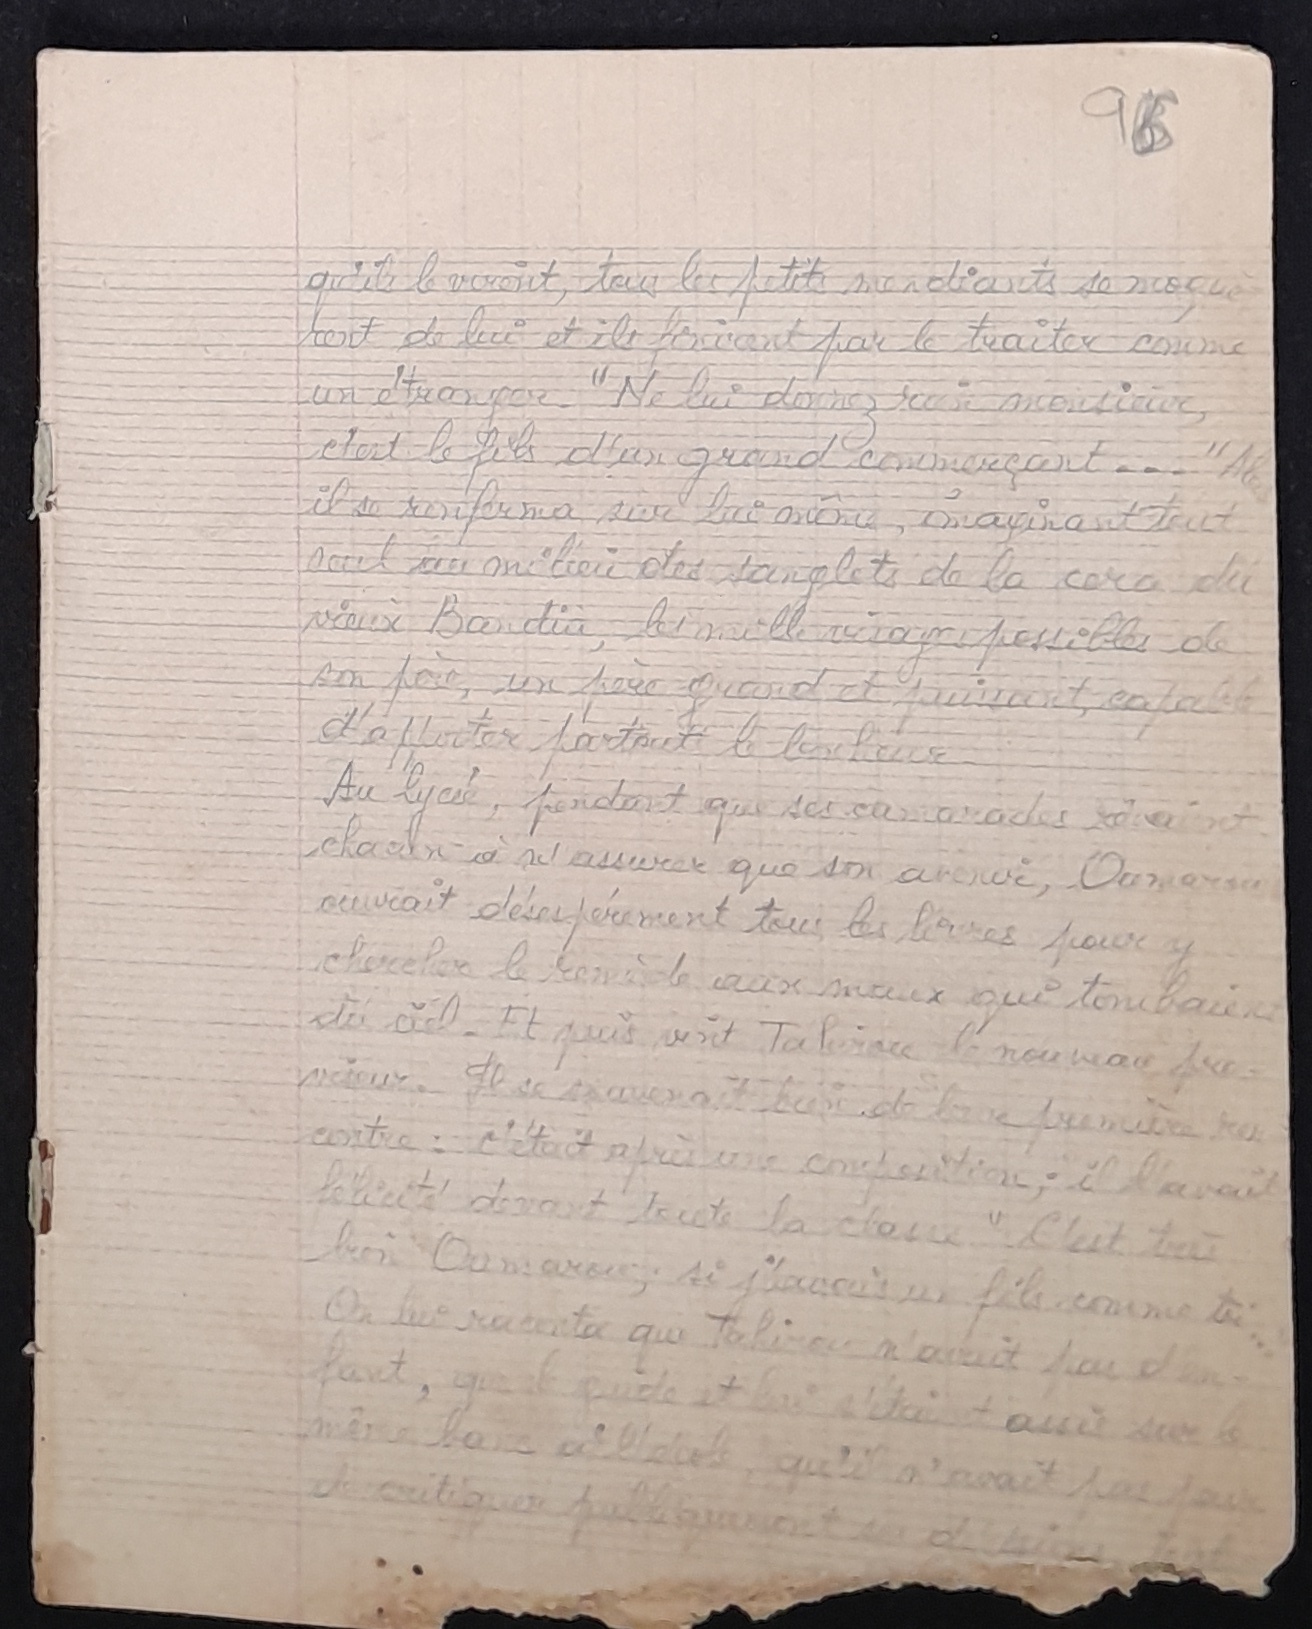 96
qu'ils le virent, tous les petits mendiants se moquè
rent de lui et ils finirent par le traiter comme
un étranger "Ne lui donnez rien monsieur,
c'est le fils d'un grand commerçant ---- " Alors
il se renferma sur lui même, imaginant tout
seul au milieu des sanglots de la cora du
vieux Bandia, les mille visages possibles de
son père, un père grand et puissant, capable
d'apporter partout le bonheur
Au lycée, pendant que ses camarades rêvaient
chacun à n'assurer que son avenir, Oumarou
ouvrait désespérement tous les livres pour y
chercher le remède aux maux qui tombaient
du ciel. Et puis vint Tahirou le nouveau pro-
viseur. Il se souvenait bien de leur première ren
contre : c'était après une composition ; il l'avait
félicité devant toute la classe " C'est très
bien Oumarou ; si j'avais un fils comme toi...
On lui raconta que Tahirou n'avait pas d'en-
fant, que le guide et lui s'étaient assis sur le
même banc à l'école, qu'il n'avait pas peur
de critiquer publiquement ses décisions